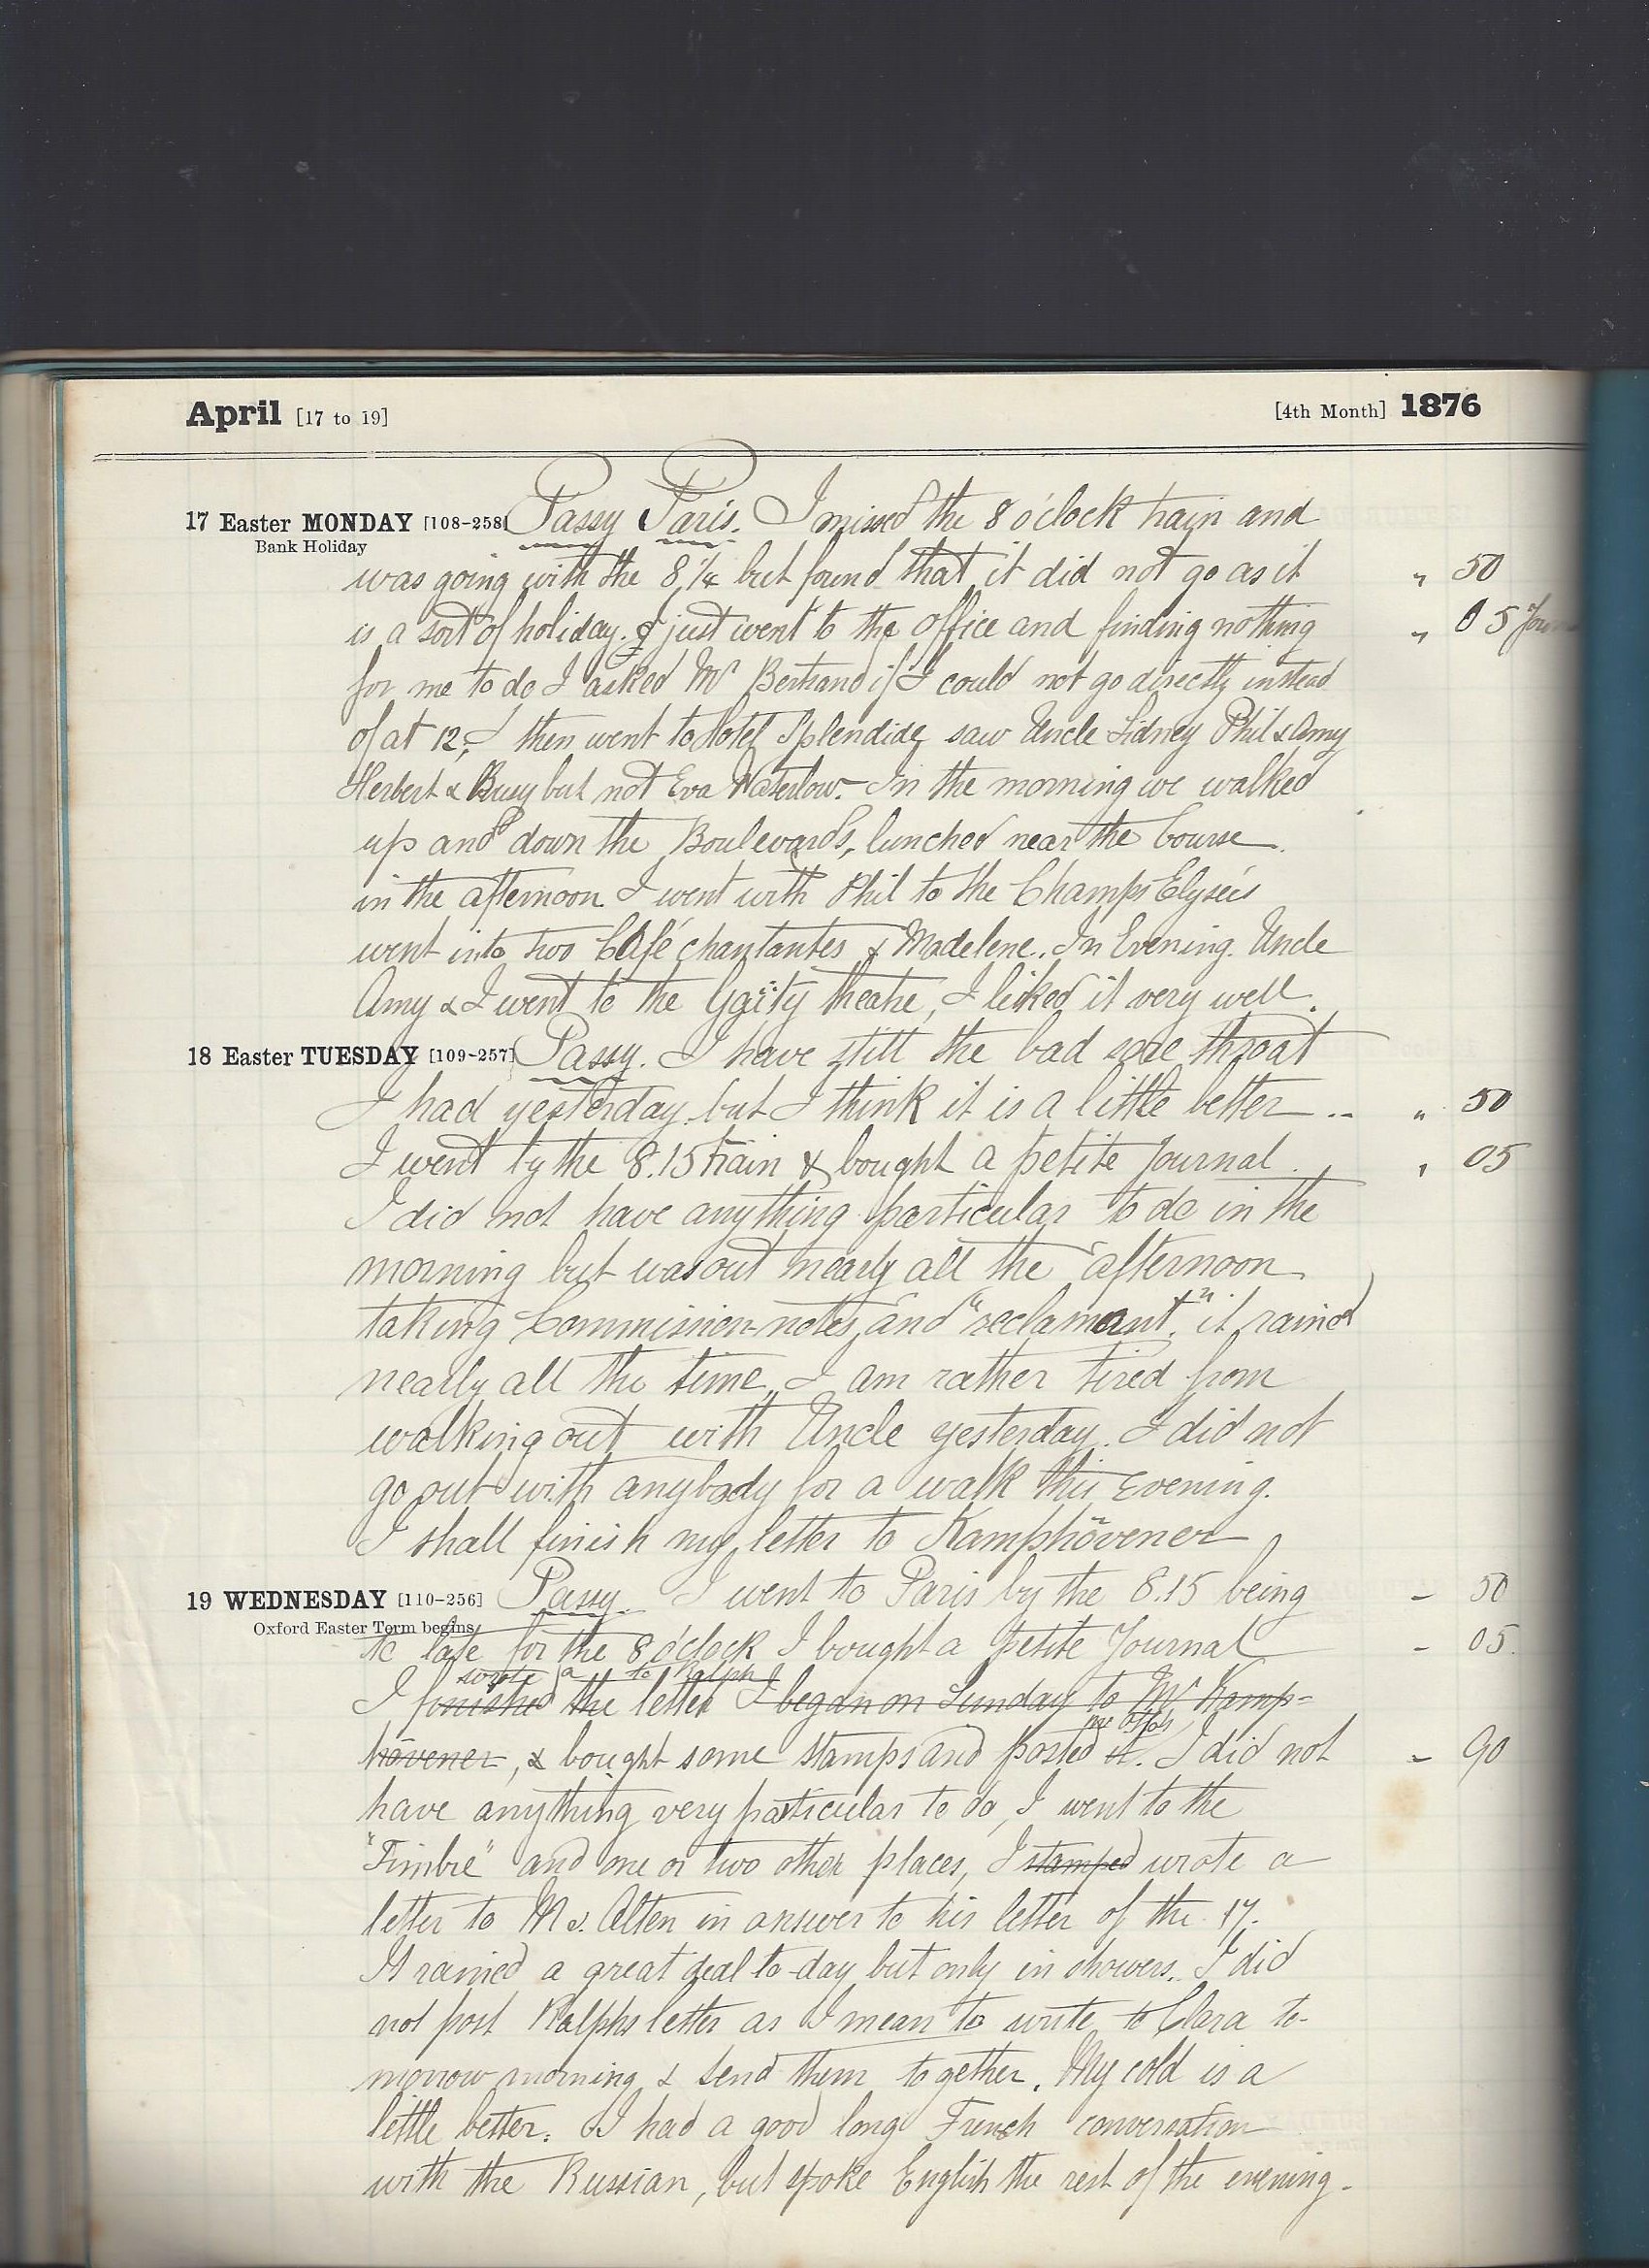 April [17 to 19] [4th Month] 1876
17 Easter MONDAY [108-258] Passy Paris. I missed the 8 o'clock train and
Bank Holiday
was going with the 8 1/4 but found that it did not go as it " 50
is a sort of holiday. I just went to the office and finding nothing " 05
for me to do I asked Mr Bertrand if I could not go directly instead
of at 12, I then went to Hotel Splendide saw Uncle Sidney Phil & Amy
Herbert & Busy but not Eva Waterlow. In the morning we walked
up and down the Boulevards, lunched near the bourse.
in the afternoon I went with Phil to the Champs Elyseés
went into two Café chantantes & Madelene. In Evening. Uncle
Amy & I went to the Gaïty theatre, I liked it very well.
18 Easter TUESDAY [109-257] Passy. I have still the bad sore throat
I had yesterday but I think it is a little better .. " 50
I went by the 8.15 train & bought a petite Journal. " 05
I did not have anything particular to do in the
morning but was out nearly all the afternoon
taking Commission-notes, and "reclamant." it rained
nearly all the time, I am rather tired from
walking out with Uncle yesterday. I did not
go out with anybody for a walk this Evening.
I shall finish my letter to Kamphövener
19 WEDNESDAY [110-256] Passy. I went to Paris by the 8.15 being - 50
Oxford Easter Term begins
to late for the 8 o'clock I bought a Petite Journal - 05.
wrote a to Ralph
I finished the letter I began on Sunday to Mr Kamp=
hövener, & bought some stamps and posted it. I did not - 90
have anything very particular to do, I went to the
"Timbre" and one or two other places, I stamped wrote a
letter to M v. Alten in answer to his letter of the 17.
It rained a great deal to-day but only in showers. I did
not post Ralphs letter as I mean to write to Clara to-
morrow morning & send them together. My cold is a
little better. I had a good long French conversation
with the Russian, but spoke English the rest of the evening.